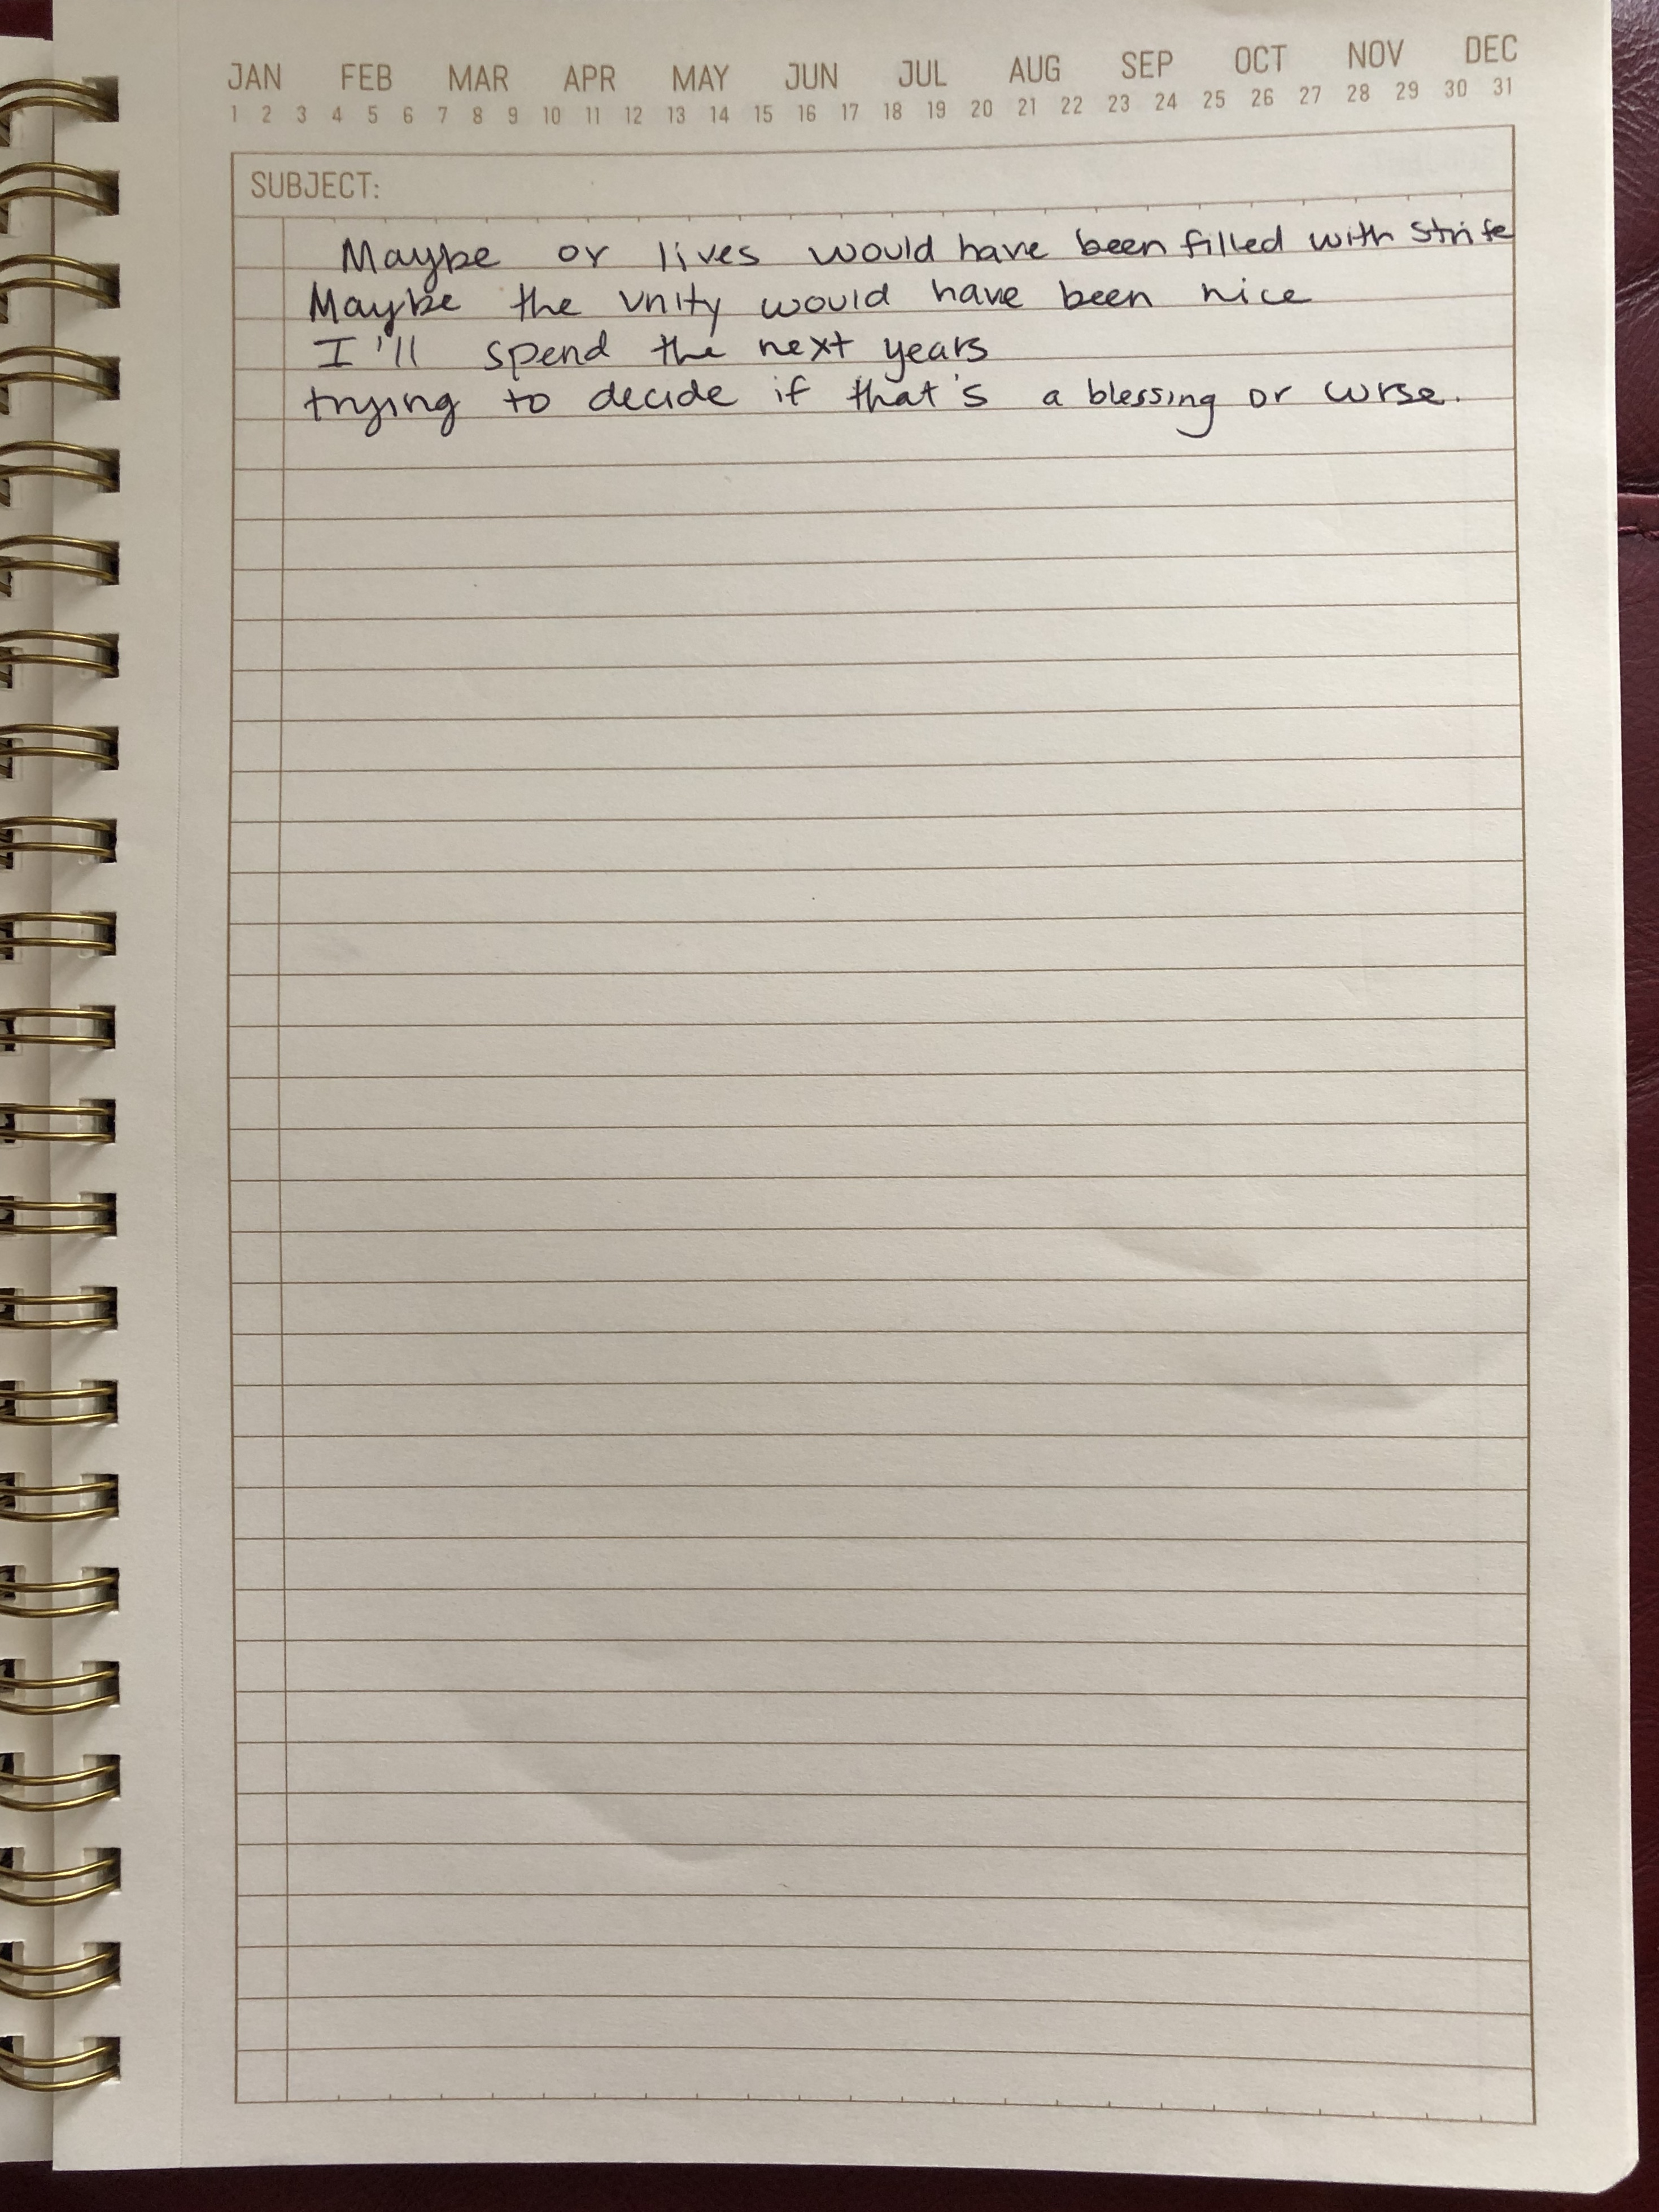 JAN FEB MAR APR MAY JUN JUL AUG SEP OCT NOV DEC
1 2 3 4 5 6 7 8 9 10 11 12 13 14 15 16 17 18 19 20 21 22 23 24 25 26 27 28 29 30 31
SUBJECT:
Maybe or lives would have been filled with strife
Maybe the unity would have been nice
I'll spend the next years
trying to decide if that's a blessing or curse.